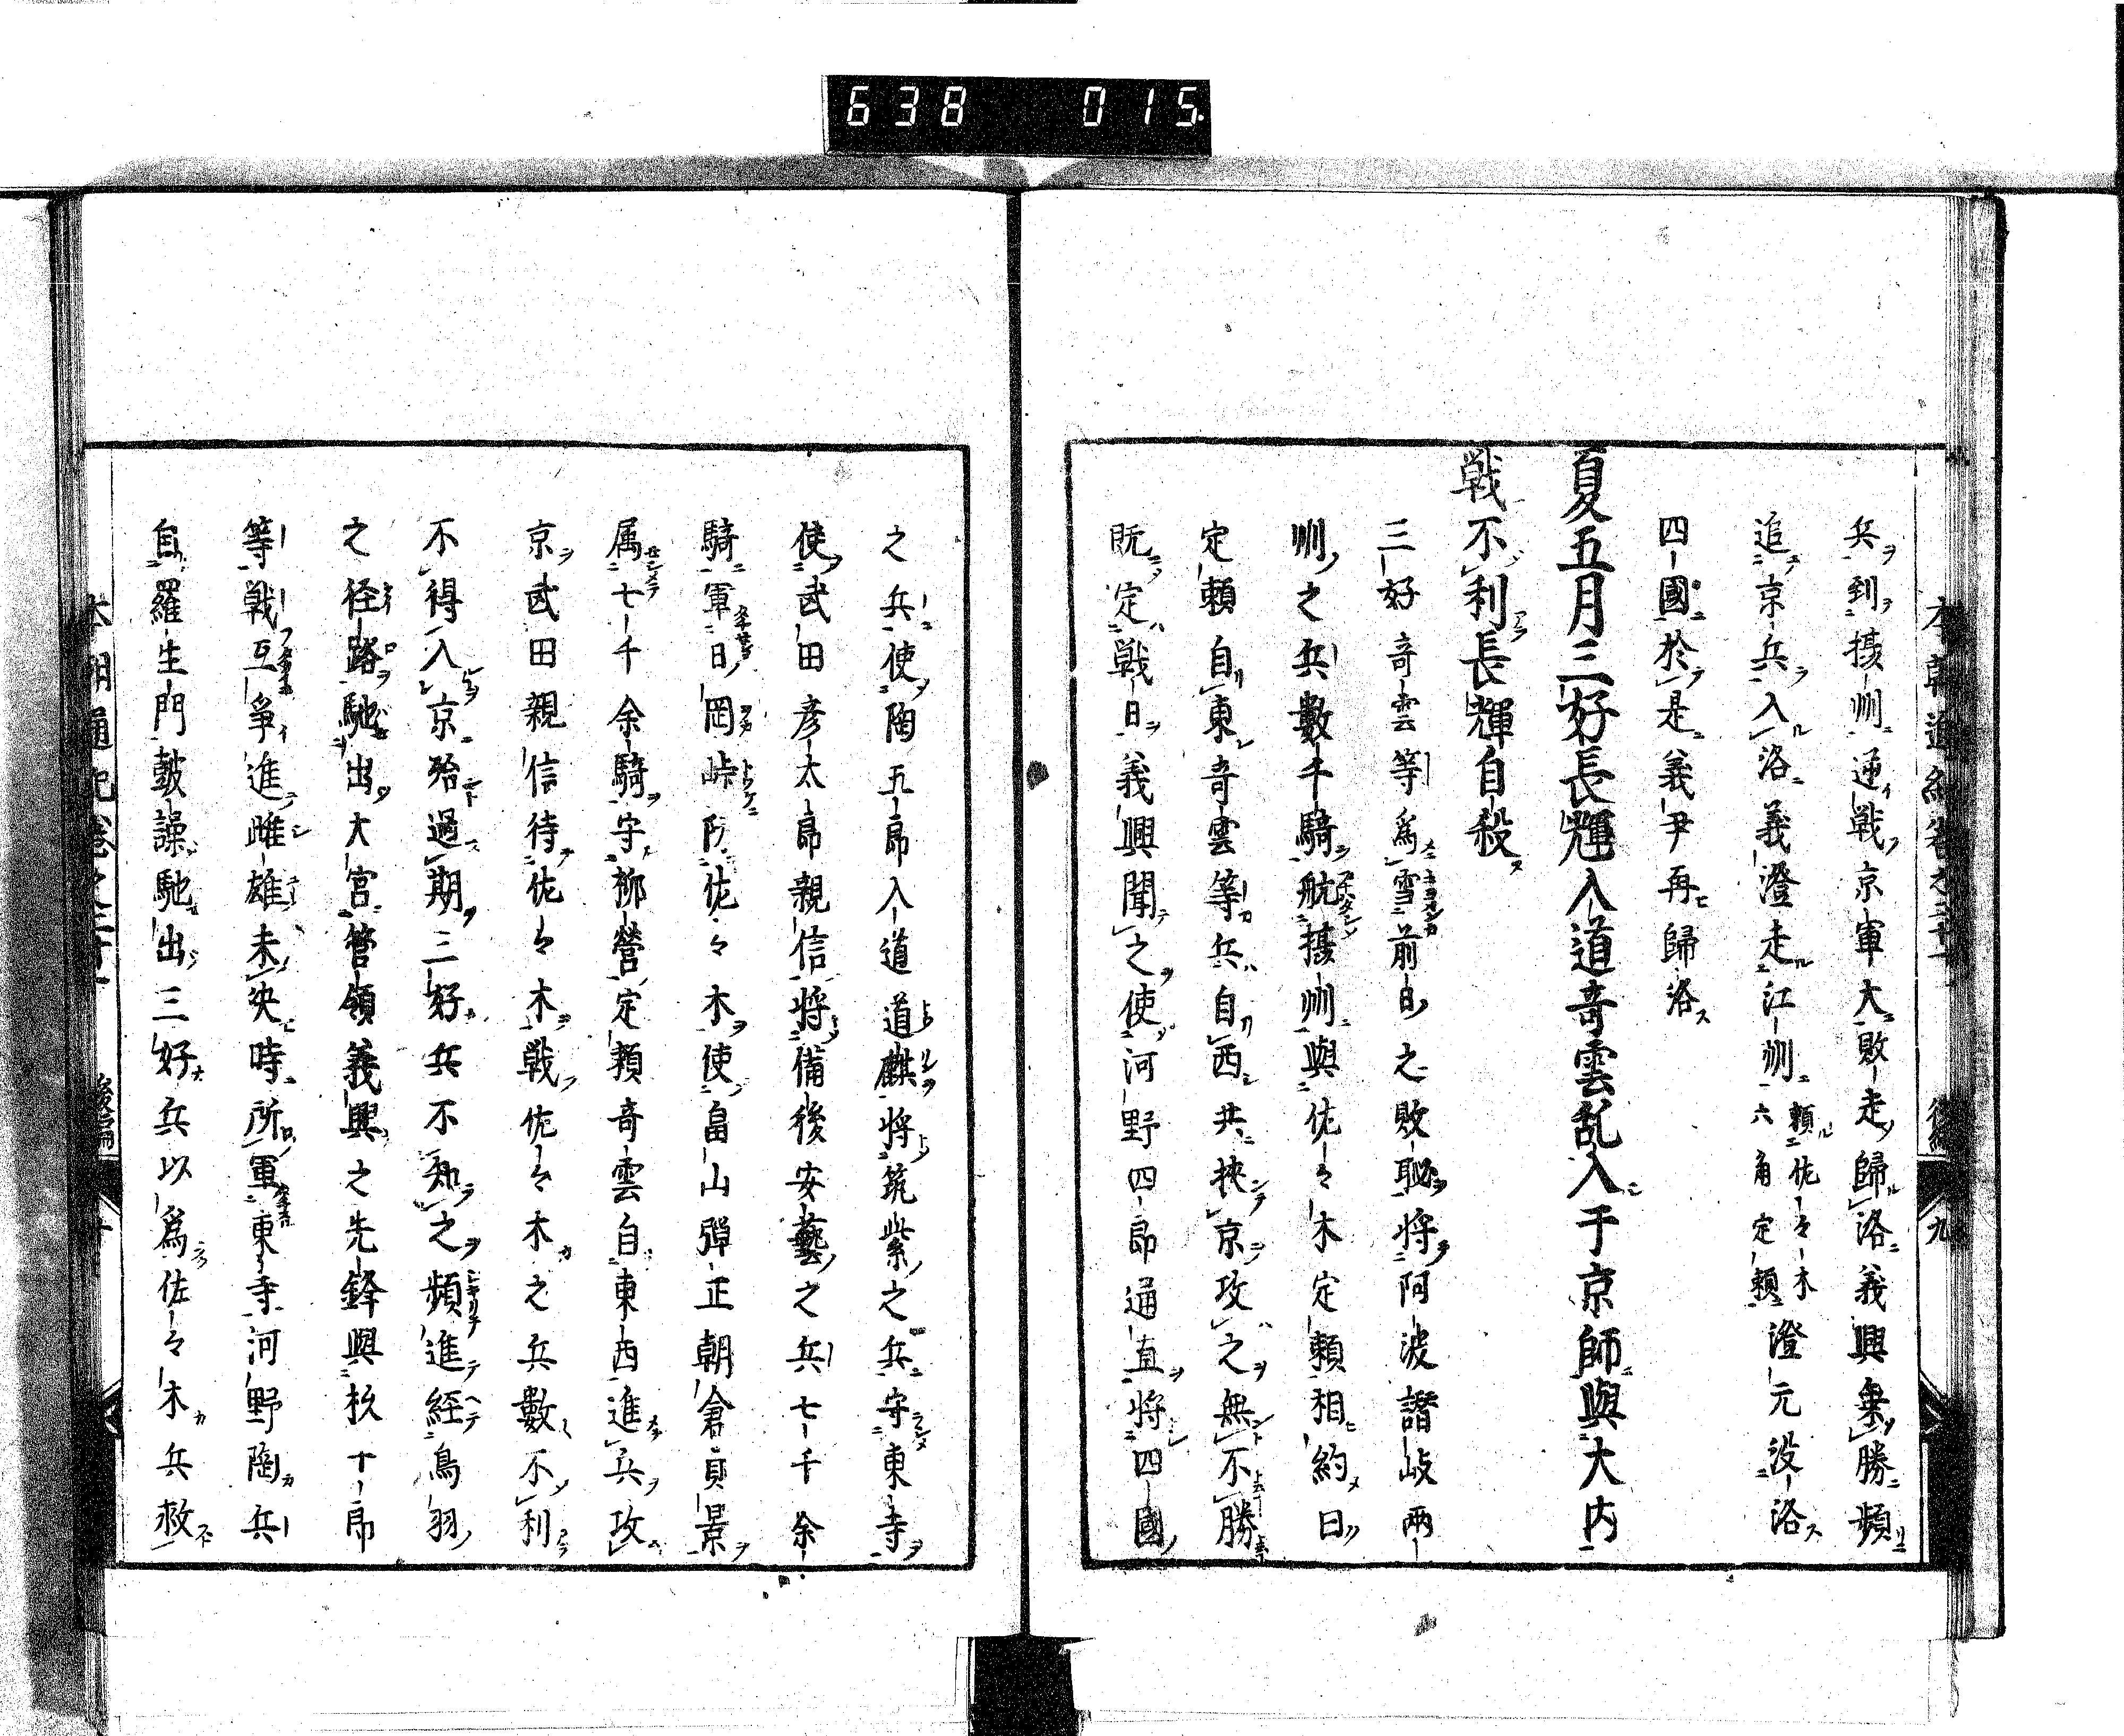 638 015
本朝通紀卷之二十一 後編 九
兵到摂州逆戦京軍大敗走歸洛義興乗勝頻
追京兵入洛義澄走江州頼佐々木六角定頼澄元没洛
四國於是義尹再歸洛
夏五月三好長輝入道竒雲乱入于京師與大内
戦不利長輝自殺
三好竒雲等為雪前日之敗恥将阿波讃岐兩
州之兵數千騎航摂州與佐々木定頼相約曰
定頼自東竒雲等兵自西共挾京攻之無不勝
既定戦日義興聞之使河野四郎通直将四國
之兵使陶五郎入道道麒将筑紫之兵守東寺
使武田彦太郎親信将備後安藝之兵七千余
騎軍日岡峠防佐々木使畠山弾正朝倉貞景
属七千余騎守柳營定頼竒雲自東西進兵攻
京武田親信待佐々木戦佐々木之兵數不利
不得入京殆過期三好兵不知之頻進経鳥羽
之径路馳出大宮管領義興之先鋒與杦十郎
等戦互爭進雌雄未决時所軍東寺河野陶兵
自羅生門鼓譟馳出三好兵以為佐々木兵救
本朝通紀卷之二十一 後編 十